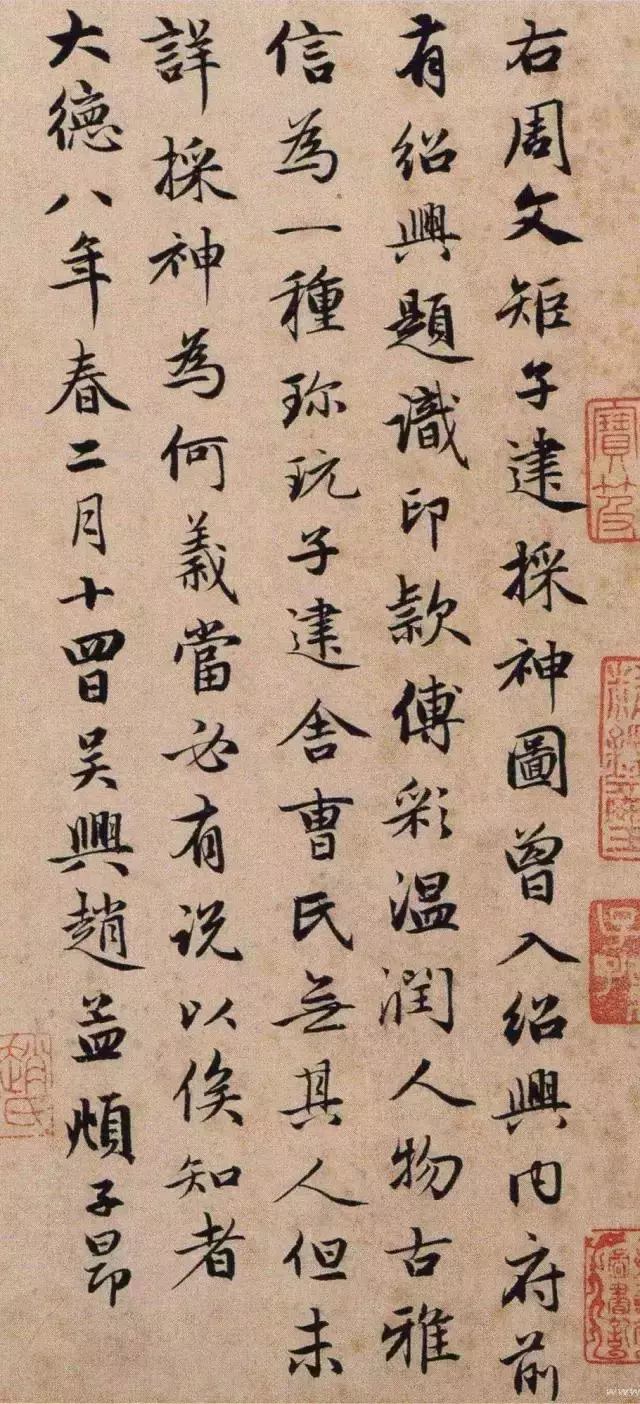 右周文矩子建採神圖曾入紹興内府前
有紹興題識印款傅彩温潤人物古雅
信為一種珎玩子建舎曹氏無其人但未
詳採神為何義當必有説以俟知者
大德八年春二月十四日吴興趙孟頫子昂
趙氏
www